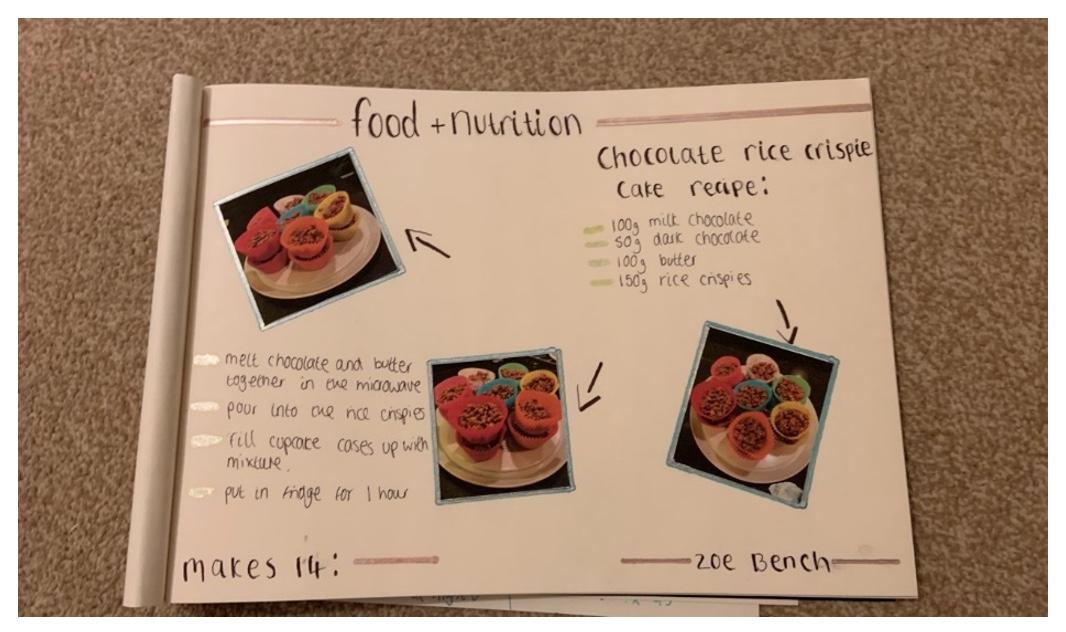 food + nutrition
Chocolate rice crispie
cake recipe:
100g milk chocolate
50g dark chocolate
100g butter
150g rice crispies
melt chocolate and butter
together in the microwave
pour into the rice crispies
fill cupcake cases up with
mixture.
put in fridge for 1 hour
makes 14:
zoe Bench